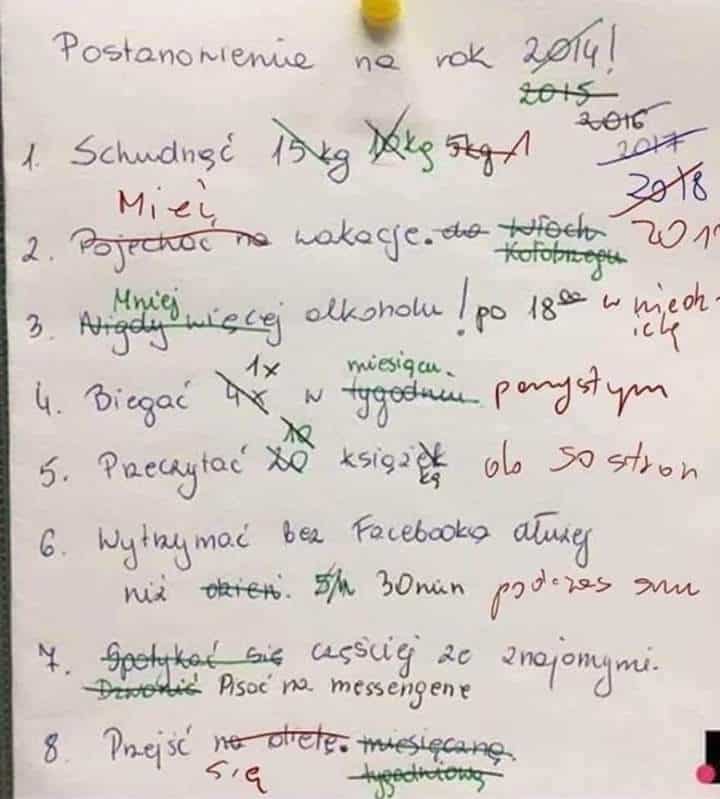 Postanowienie na rok 2014!
2015
2016
2017
1. Schudnąć 15kg 10kg 5kg 1
2018
Mieć
2. Pojechać na wakacje. do Włoch 2019
Kołobrzegu
Mniej
3. Nigdy więcej alkoholu! po 18⁰⁰ w niedzielę
1x miesiącu.
4. Biegać 4x w tygodniu parzystym
10
5. Przeczytać 20 książek do 50 stron
kę
6. Wytrzymać bez Facebooka dłużej
niż dzień. 5h 30min podczas snu
7. Spotykać się częściej ze znajomymi.
Dzwonić Pisać na messengerze
8. Przejść na dietę. miesięczną
się tygodniową